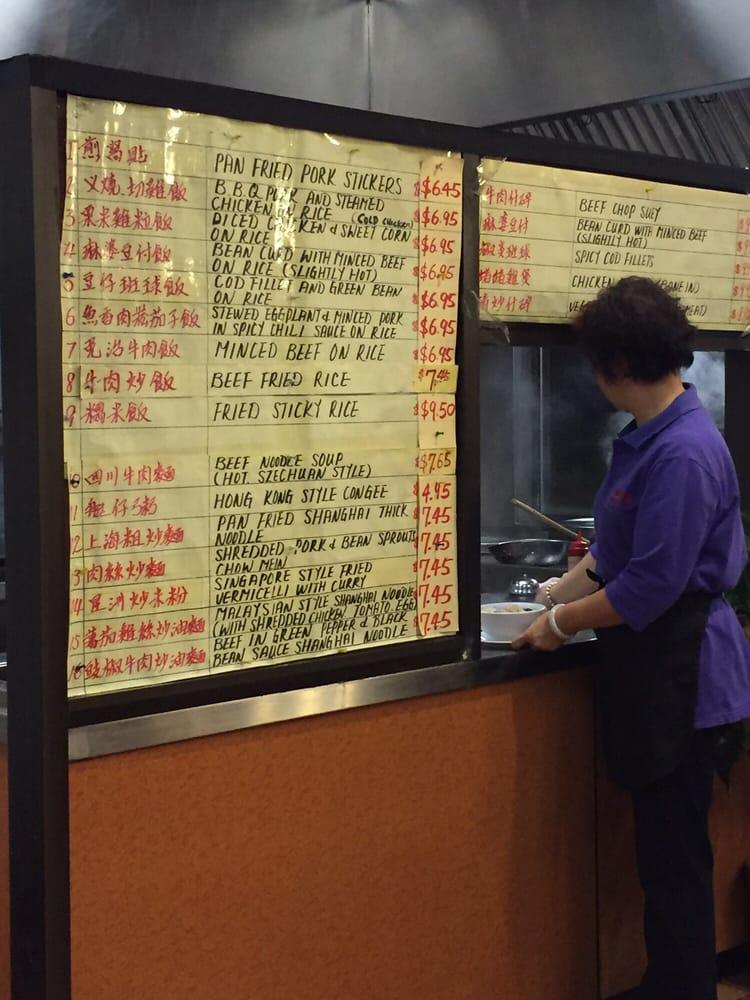 1 煎窩貼 PAN FRIED PORK STICKERS $6.45
2 义燒切雞飯 B.B.Q PORK AND STEAMED
CHICKEN ON RICE (COLD CHICKEN) $6.95
3 粟米雞粒飯 DICED CHICKEN & SWEET CORN
ON RICE $6.95
4 麻婆豆付飯 BEAN CURD WITH MINCED BEEF
ON RICE (SLIGHTLY HOT) $6.95
5 豆仔班球飯 COD FILLET AND GREEN BEAN
ON RICE $6.95
6 魚香肉蓉茄子飯 STEWED EGGPLANT & MINCED PORK
IN SPICY CHILI SAUCE ON RICE $6.95
7 免治牛肉飯 MINCED BEEF ON RICE $6.95
8 牛肉炒飯 BEEF FRIED RICE $7.45
9 糯米飯 FRIED STICKY RICE $9.50
10 四川牛肉麵 BEEF NOODLE SOUP
(HOT. SZECHUAN STYLE) $7.65
11 艇仔粥 HONG KONG STYLE CONGEE 4.95
12 上海粗炒麵 PAN FRIED SHANGHAI THICK
NOODLE 7.45
13 肉絲炒麵 SHREDDED PORK & BEAN SPROUTS
CHOW MEIN 7.45
14 星洲炒米粉 SINGAPORE STYLE FRIED
VERMICELLI WITH CURRY 7.45
15 蕃茄雞絲炒油麵 MALAYSIAN STYLE SHANGHAI NOODLE
(WITH SHREDDED CHICKEN, TOMATO, EGG) 7.45
16 豉椒牛肉炒油麵 BEEF IN GREEN PEPPER & BLACK
BEAN SAUCE SHANGHAI NOODLE 7.45
牛肉什碎 BEEF CHOP SUEY
麻婆豆付 BEAN CURD WITH MINCED BEEF
(SLIGHTLY HOT)
椒炎班球 SPICY COD FILLETS
雞煲 CHICKEN (BONE IN)
炒什碎